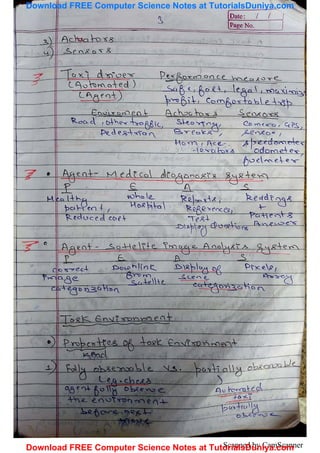 Download FREE Computer Science Notes at TutorialsDuniya.com
3
Date: / /
Page No.
3) Actuators
4) Sensors
Taxi driver Performance measure
(Automated) Safe, fast, legal, maximize
(Agent) profit, comfortable trip
Environment Actuators Sensors
Road, other traffic, Steering, Camera, GPS,
Pedestrian Breaks, sensor,
Horn, Acc- speedometer
elerators + odometer,
fuelmeter
Agent - Medical diagonosis system
P E A S
Healthy whole Reports, Readings
patient, Hospital References, Patients
Reduced cost Test Answer
Display Questions
Agent - Satellite image Analysis system
P E A S
correct Downlink Display of Pixels,
image from scene Array
categorization Satellite categorization
Task Environment
Properties of task Environment
1) Fully observable vs. partially observable
e.g. chess
agent fully observe Automated
the environment taxi
before next partially
move observe
Download FREE Computer Science Notes at TutorialsDuniya.com
Scanned by CamScanner